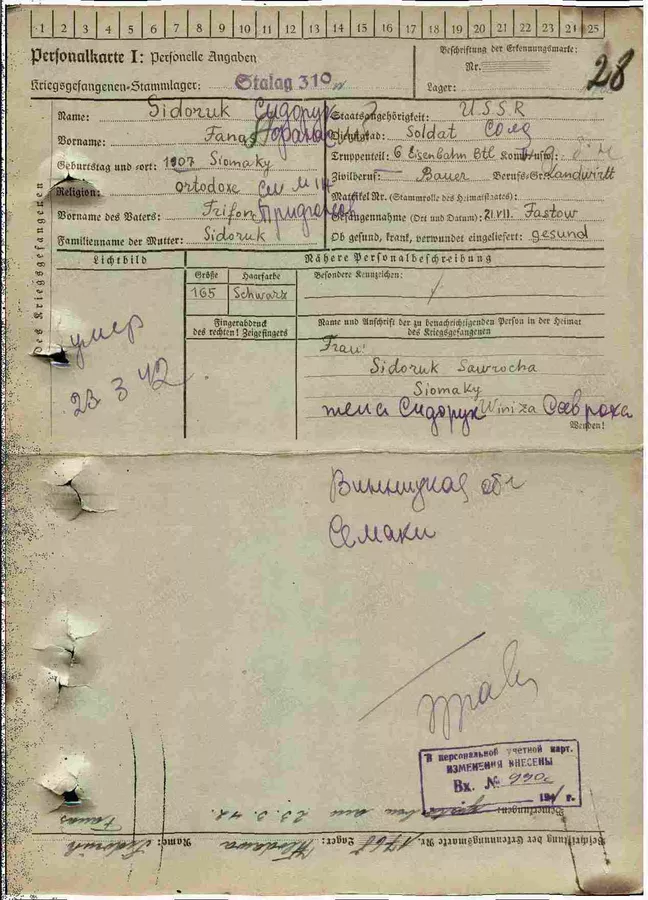 1 2 3 4 5 6 7 8 9 10 11 12 13 14 15 16 17 18 19 20 21 22 23 24 25
Personalkarte I: Personelle Angaben
Beschriftung der Erkennungsmarke:
Nr.
28
Kriegsgefangenen-Stammlager: Stalag 310
Lager:
Des Kriegsgefangenen
Name: Sidoruk Сидорук
Staatsangehörigkeit: U.S.S.R
Vorname: Fanas
Dienstgrad: Soldat Солд
Geburtstag und -ort: 1907 Siomaky
Truppenteil: 6 Eisenbahn Btl Kom
Religion: ortodoxe
Zivilberuf: Bauer Berufs-Gr.: Landwirtt
Matrikel Nr. (Stammrolle des Heimatstaates):
Vorname des Vaters: Trifon
Gefangennahme (Ort und Datum): 21 VII. Fastow
Familienname der Mutter: Sidoruk
Ob gesund, krank, verwundet eingeliefert: gesund
Lichtbild
Nähere Personalbeschreibung
Größe Haarfarbe Besondere Kennzeichen:
165 Schwarz /
Fingerabdruck
des rechten! Zeigefingers
Name und Anschrift der zu benachrichtigenden Person in der Heimat
des Kriegsgefangenen
умер
23 3 42.
Frau:
Sidoruk Sawrocha
Siomaky
жена Сидорук Winiza Савроха
Wenden!
Винницкая обл
Семаки
В персональной учетной карт.
ИЗМЕНЕНИЯ ВНЕСЕНЫ
Вх. №
194 г.
Bemerkungen: am 23.3.42.
Beschriftung der Erkennungsmarke Nr. Lager: Name: Sidoruk
Fanas